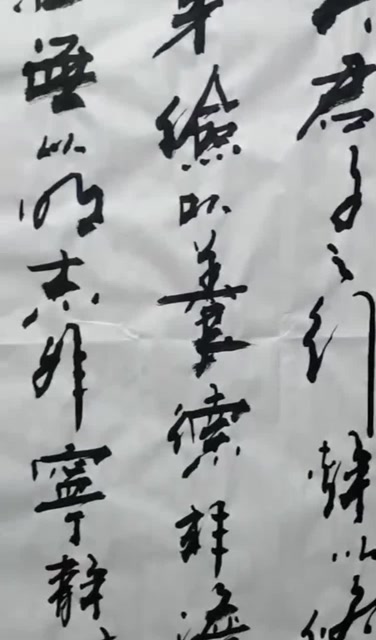 君子之行靜以修
身儉以養德非澹
泊無以明志非寧靜